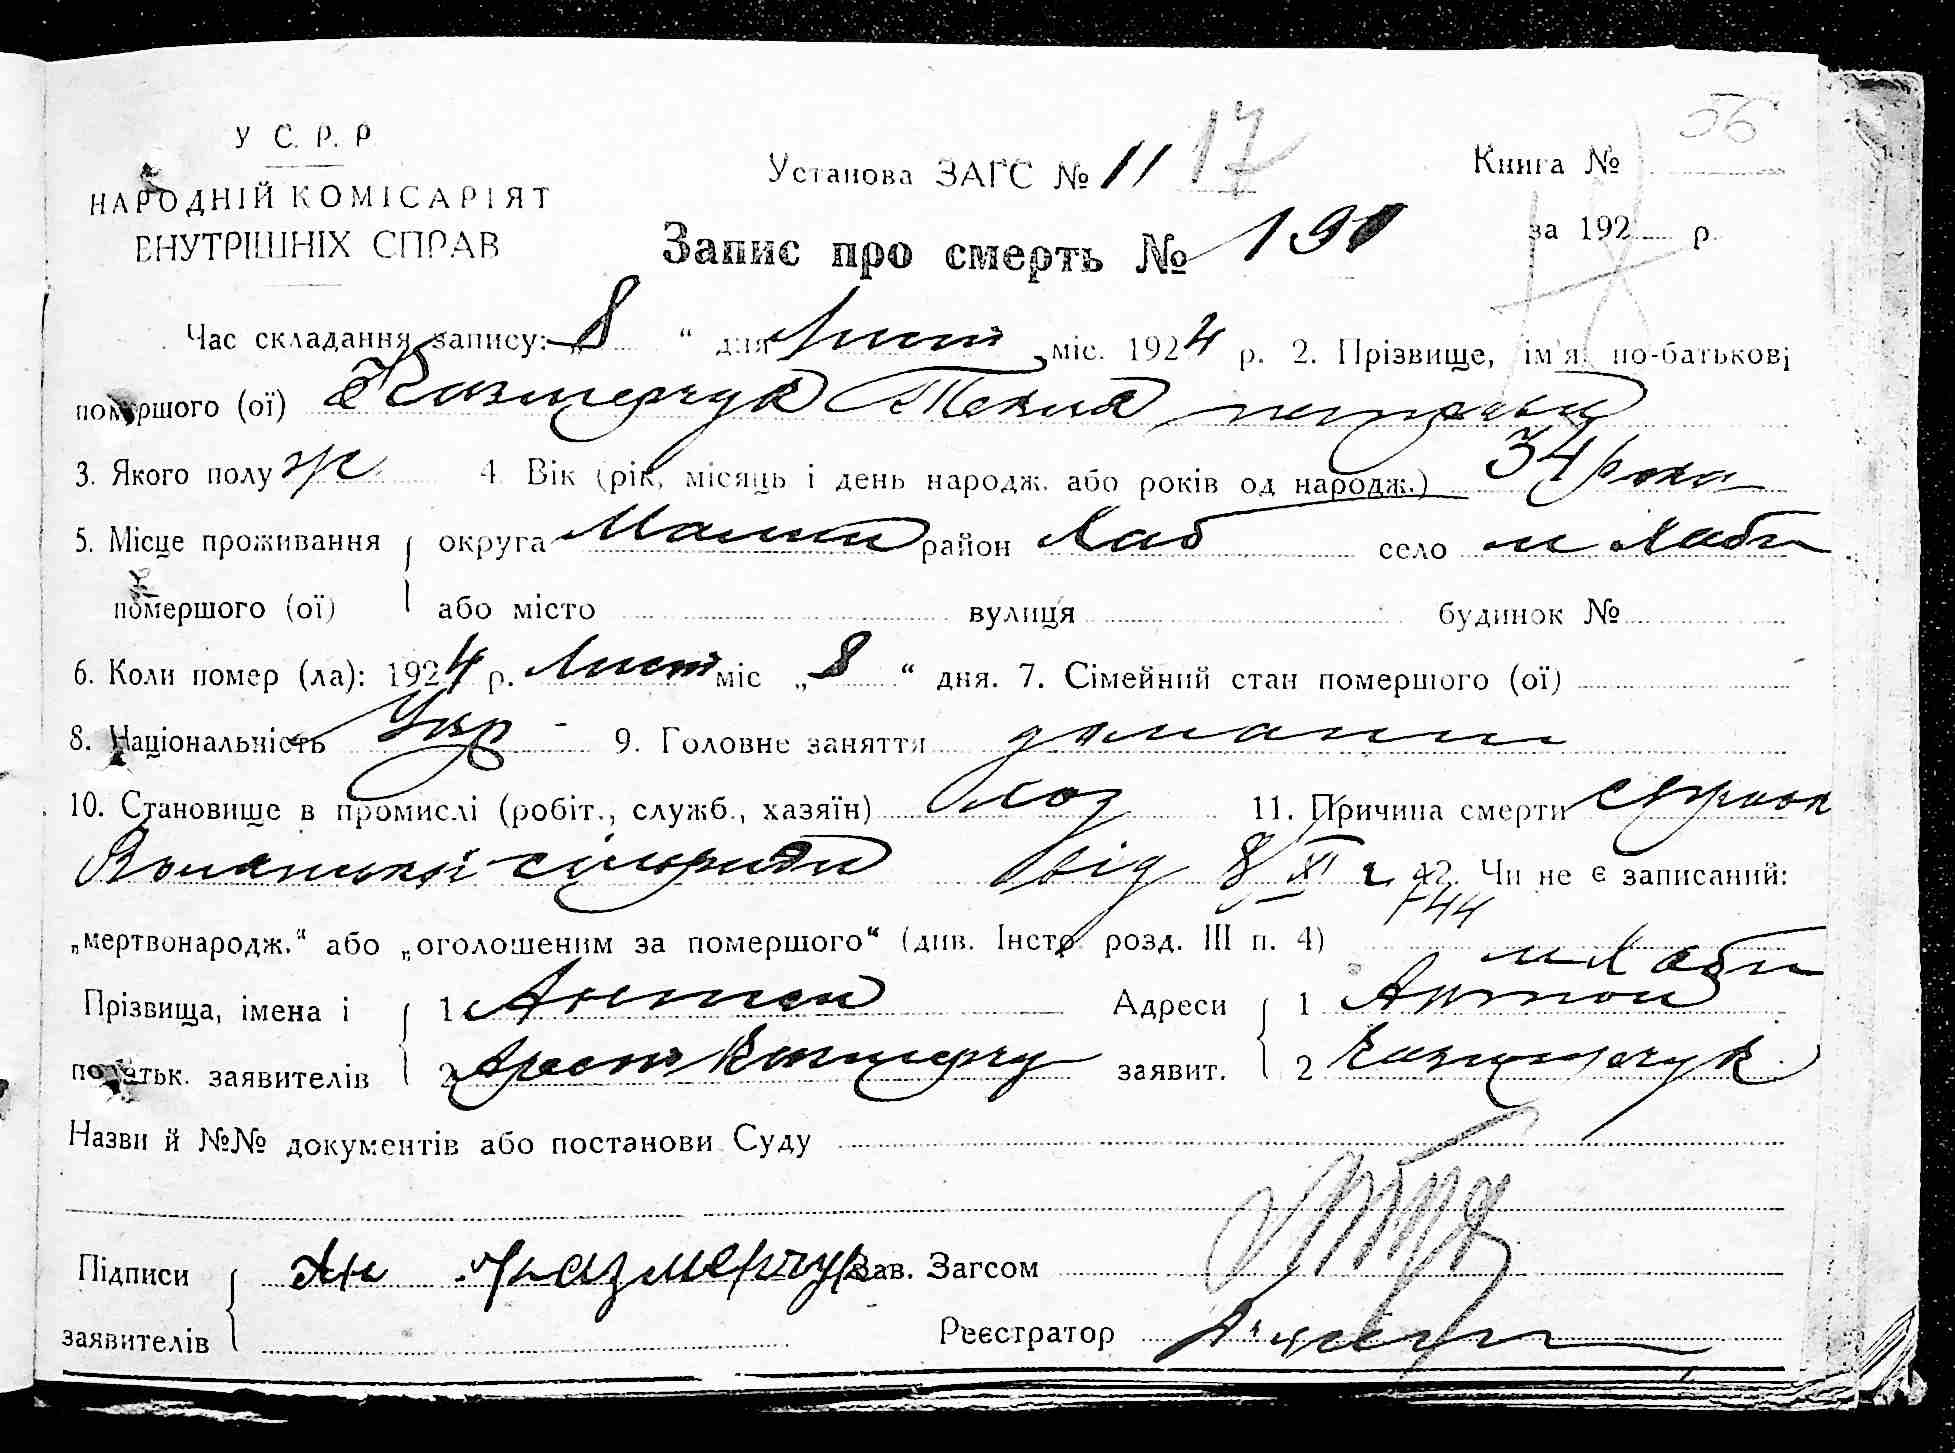 У С. Р. Р
НАРОДНІЙ КОМІСАРІЯТ
ВНУТРІШНІХ СПРАВ
Установа ЗАГС № 11 17
Книга №
56
за 192 р.
Запис про смерть № 190
Час складання запису: „8 “ дня Лист міс. 1924 р. 2. Прізвище, ім'я, по-батькові
помершого (ої) Казмерчук Текля
3. Якого полу ж 4. Вік (рік, місяць і день народж. або років од народж.) 34 роки
5. Місце проживання округа район Хаб село м Хабн
помершого (ої) або місто вулиця будинок №
6. Коли помер (ла): 1924 р. Лист міс „8 “ дня. 7. Сімейний стан помершого (ої)
8. Національність Укр 9. Головне заняття домашн
10. Становище в промислі (робіт., служб., хазяїн) 11. Причина смерти
від 8/XI 12. Чи не є записаний:
144
„мертвонародж.“ або „оголошеним за помершого“ (див. Інстр. розд. III п. 4)
м Хабн
Прізвища, імена і 1 Антон Адреси 1 Антон
по-батьк. заявителів 2 Казмерчу заявит. 2 Казимрчук
Назви й №№ документів або постанови Суду
Підписи Ан Казмерчук Зав. Загсом
заявителів Реєстратор